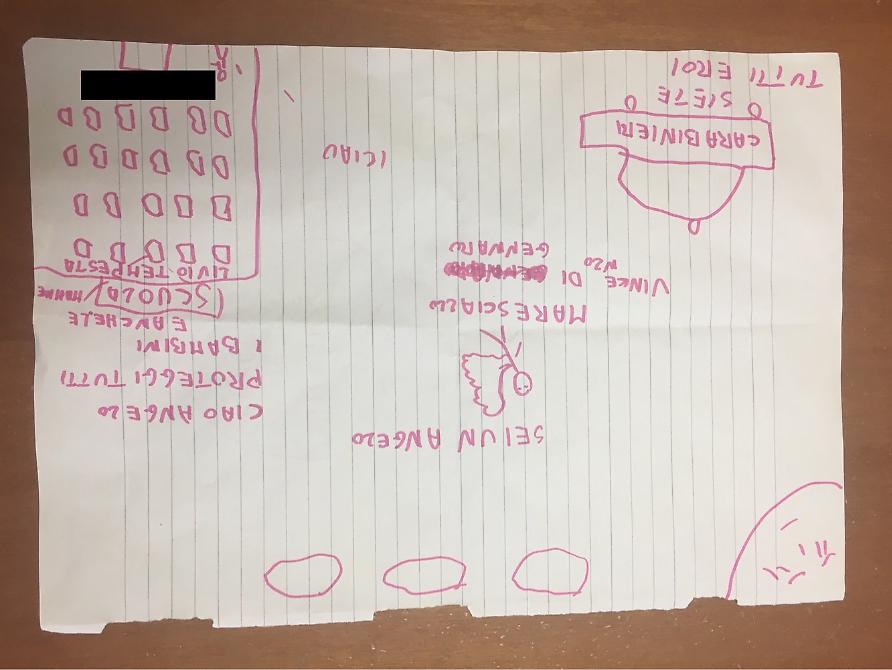 SEI UN ANGELO
CIAO ANGELO
PROTEGGI TUTTI
I BAMBINI
E ANCHE LE
MAMME
SCUOLA
LIVIO TEMPESTA
MARESCIALLO
VINCENZO DI
GENNARO
CIAO
CARABINIERI
SIETE
TUTTI EROI